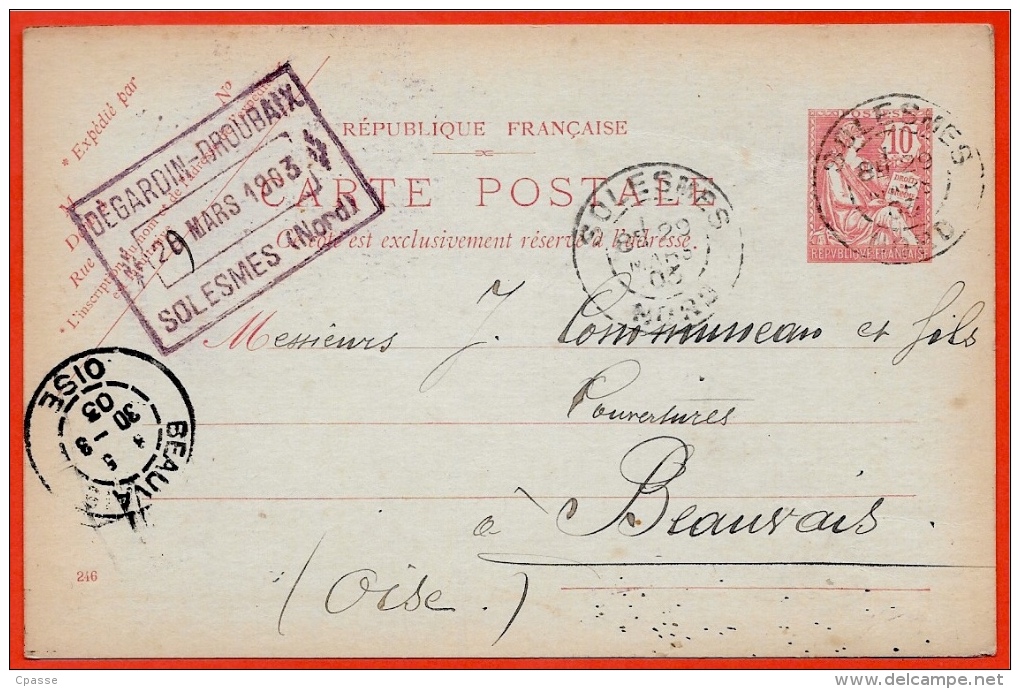 RÉPUBLIQUE FRANÇAISE
CARTE POSTALE
Ce côté est exclusivement réservé à l'adresse.
* Expédié par
Nº
Rue
DÉGARDIN-DROUBAIX
29 MARS 1903
SOLESMES (Nord)
SOLESMES
29
MARS
03
NORD
POSTES
10
RÉPUBLIQUE FRANÇAISE
SOLESMES
Messieurs J. Communeau et fils
Couvertures
à Beauvais.
(Oise.)
BEAUVA
OISE
5 - 3
30
03
246
Cpasse
www.delcampe.net